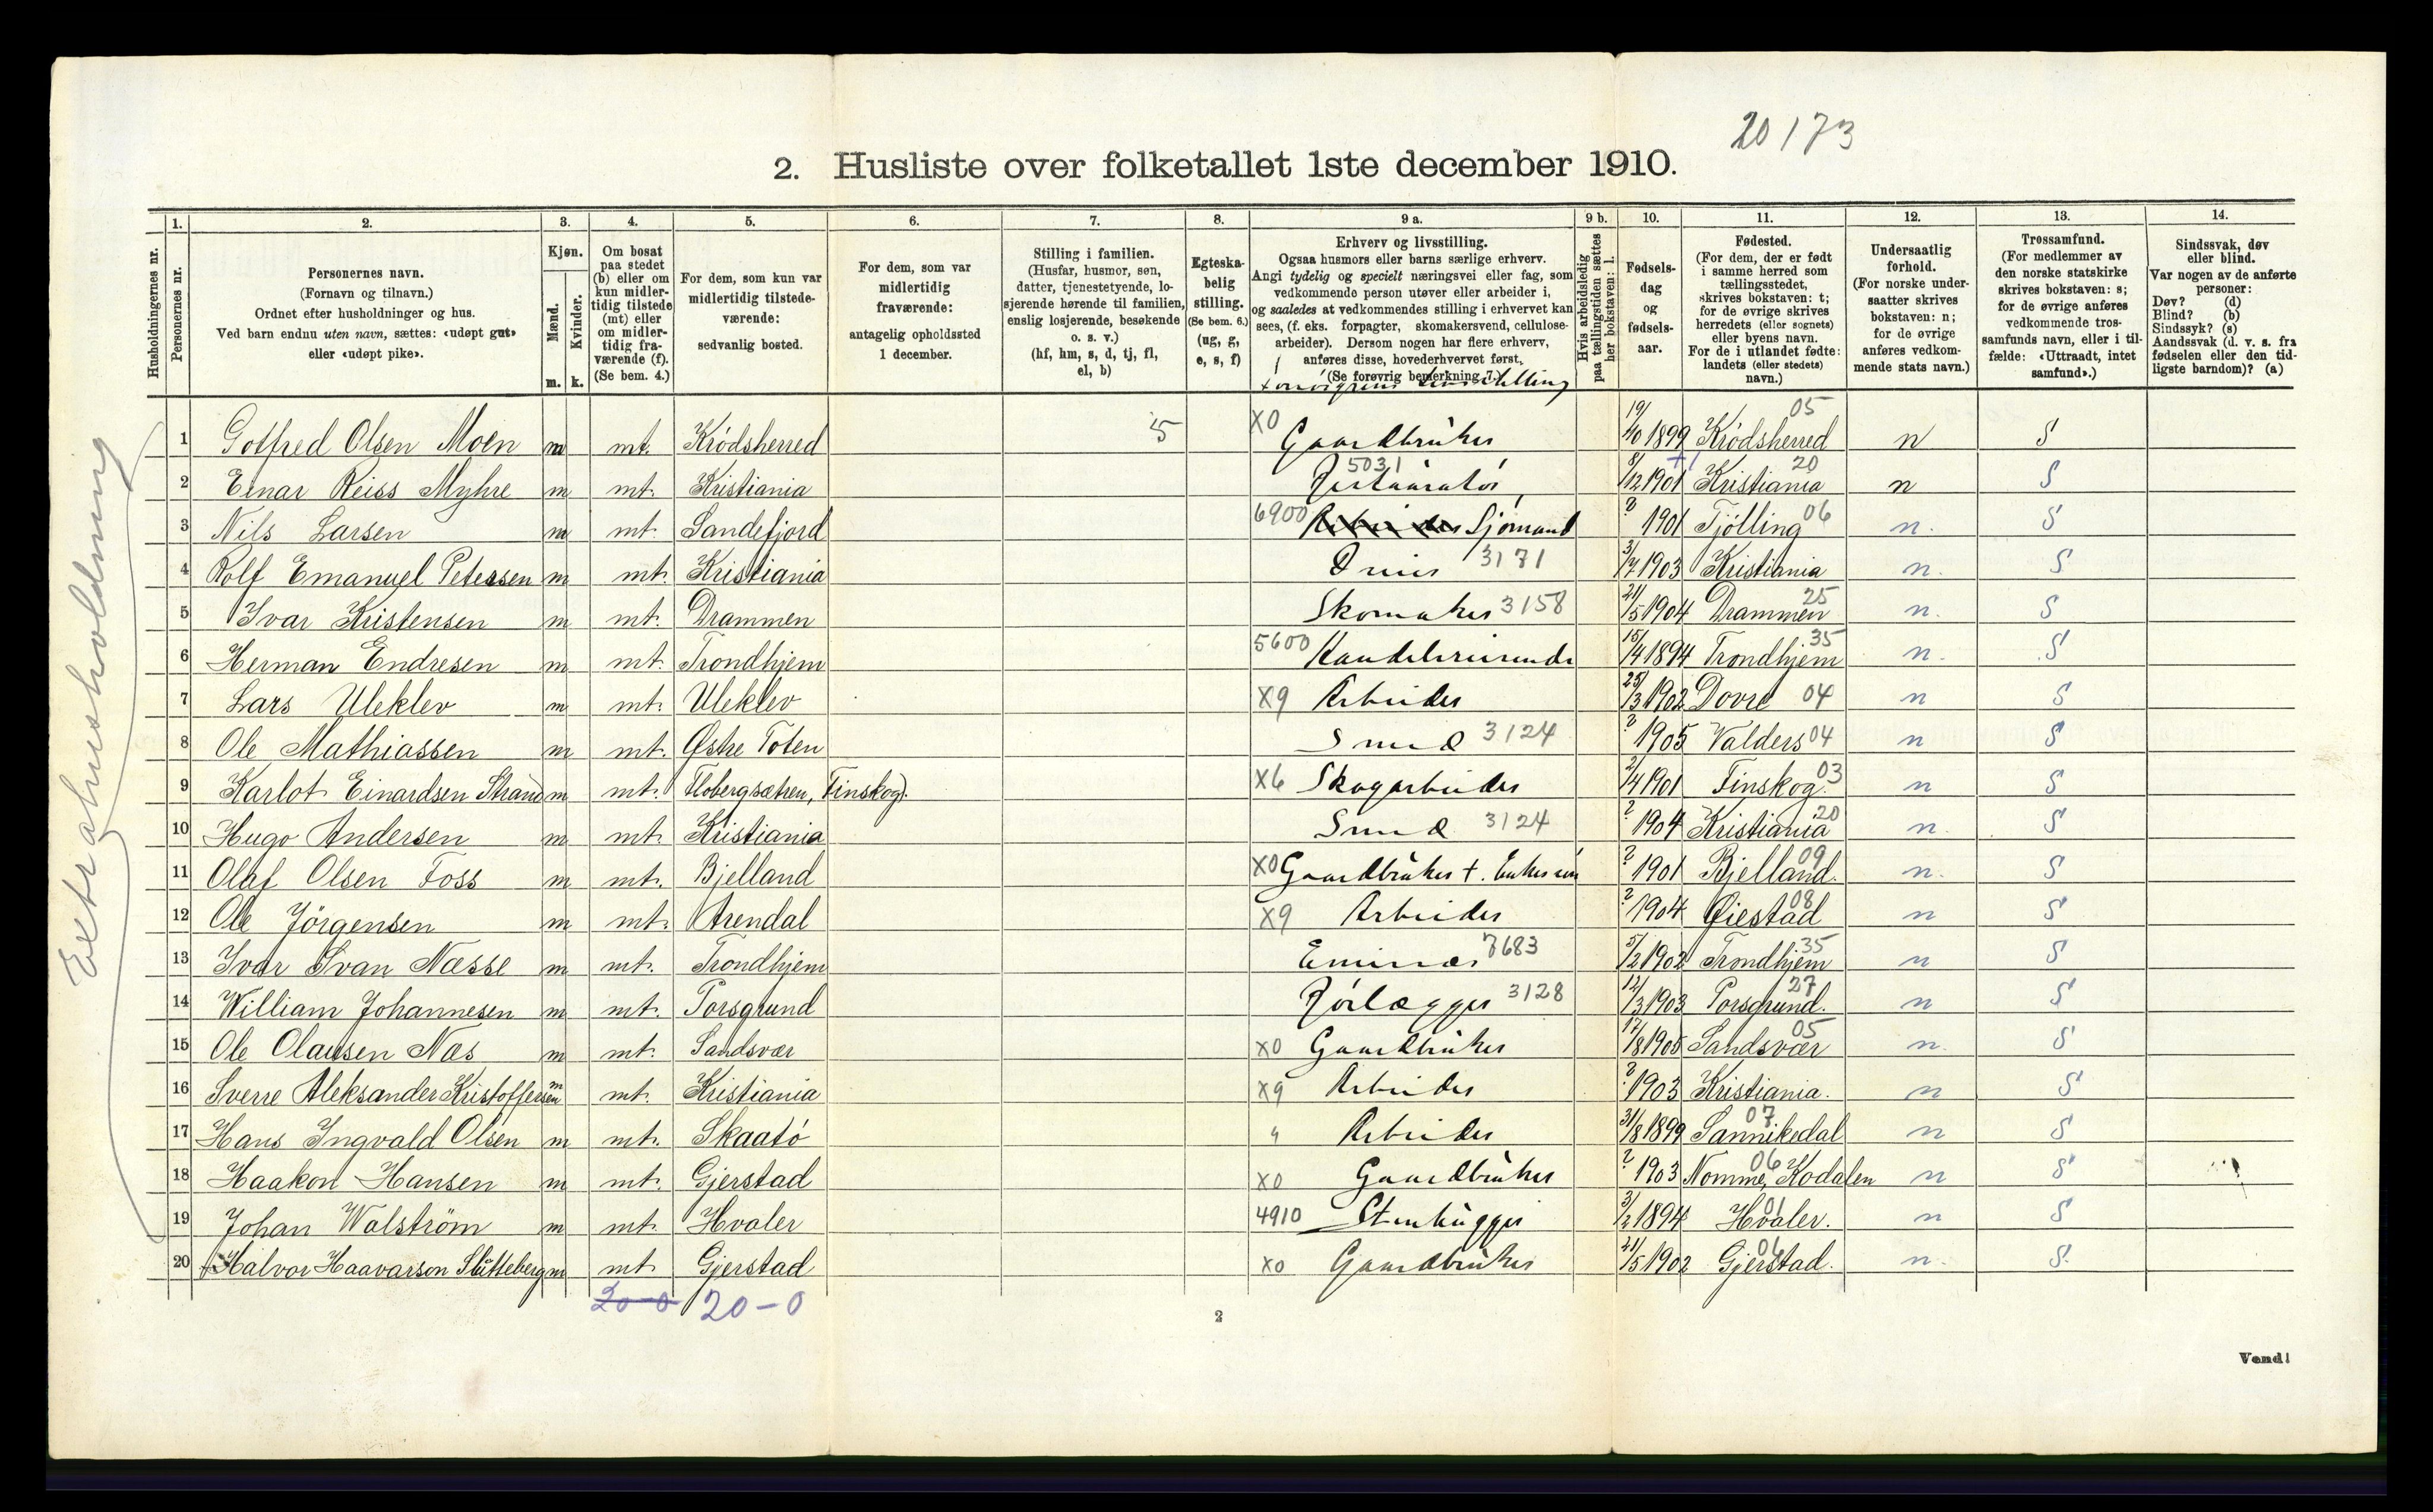 20173
2. Husliste over folketallet 1ste december 1910.
Husholdningernes nr.
1.
Personernes nr.
2.
Personernes navn.
(Fornavn og tilnavn.)
Ordnet efter husholdninger og hus.
Ved barn endnu uten navn, sættes: «udøpt gut»
eller «udøpt pike».
3.
Kjøn.
Mænd.
Kvinder.
m. k.
4.
Om bosat
paa stedet
(b) eller om
kun midler-
tidig tilstede
(mt) eller
om midler-
tidig fra-
værende (f).
(Se bem. 4.)
5.
For dem, som kun var
midlertidig tilstede-
værende:
sedvanlig bosted.
6.
For dem, som var
midlertidig
fraværende:
antagelig opholdssted
1 december.
7.
Stilling i familien.
(Husfar, husmor, søn,
datter, tjenestetyende, lo-
sjerende hørende til familien,
enslig losjerende, besøkende
o. s. v.)
(hf, hm, s, d, tj, fl,
el, b)
8.
Egteska-
belig
stilling.
(Se bem. 6.)
(ug, g,
e, s, f)
9 a.
Erhverv og livsstilling.
Ogsaa husmors eller barns særlige erhverv.
Angi tydelig og specielt næringsvei eller fag, som
vedkommende person utøver eller arbeider i,
og saaledes at vedkommendes stilling i erhvervet kan
sees, (f. eks. forpagter, skomakersvend, cellulose-
arbeider). Dersom nogen har flere erhverv,
anføres disse, hovederhvervet først.
(Se forøvrig bemerkning 7.)
9 b.
Hvis arbeidsledig
paa tællingstiden sættes
her bokstaven: l.
10.
Fødsels-
dag
og
fødsels-
aar.
11.
Fødested.
(For dem, der er født
i samme herred som
tællingsstedet,
skrives bokstaven: t;
for de øvrige skrives
herredets (eller sognets)
eller byens navn.
For de i utlandet fødte:
landets (eller stedets)
navn.)
12.
Undersaatlig
forhold.
(For norske under-
saatter skrives
bokstaven: n;
for de øvrige
anføres vedkom-
mende stats navn.)
13.
Trossamfund.
(For medlemmer av
den norske statskirke
skrives bokstaven: s;
for de øvrige anføres
vedkommende tros-
samfunds navn, eller i til-
fælde: «Uttraadt, intet
samfund».)
14.
Sindssvak, døv
eller blind.
Var nogen av de anførte
personer:
Døv? (d)
Blind? (b)
Sindssyk? (s)
Aandssvak (d. v. s. fra
fødselen eller den tid-
ligste barndom)? (a)
Extrahusholdning
1 Gotfred Olsen Moen m mt. Krödsherred 5 X0 Gaardbruker 19/10 1899 Krödsherred 05 n S
2 Einar Reiss Myhre m mt. Kristiania 5031 8/12 1901 Kristiania 20 n S
3 Nils Larsen m mt. Sandefjord 6900 Arbeider Sjömand ? 1901 Tjölling 06 n. S
4 Rolf Emanuel Petersen m mt. Kristiania 3171 3/7 1903 Kristiania n. S
5 Ivar Kristensen m mt. Drammen Skomaker 3158 21/5 1904 Drammen 25 n. S
6 Herman Endresen m mt. Trondhjem 5600 Handelsreisende 15/4 1894 Trondhjem 35 n. S
7 Lars Uleklev m mt. Uleklev X9 Arbeider 25/3 1902 Dovre 04 n S
8 Ole Mathiassen m mt. Østre Toten Smed 3124 ? 1905 Valders 04 n S
9 Karlot Einardsen Strand m mt. Flobergsætren, Finskog). X6 Skogarbeider 2/4 1901 Finskog. 03 n S
10 Hugo Andersen m mt. Kristiania Smed 3124 ? 1904 Kristiania 20 n. S
11 Olaf Olsen Foss m mt. Bjelland X0 Gaardbruker + ? 1901 Bjelland. 09 n. S
12 Ole Jörgensen m mt. Arendal X9 Arbeider ? 1904 Øiestad 08 n S
13 Ivar Ivan Næsse m mt. Trondhjem 7683 5/2 1902 Trondhjem 35 n S
14 William Johannesen m mt. Porsgrund Rörlægger 3128 12/3 1903 Porsgrund. 27 n S
15 Ole Olausen Næs m mt. Sandsvær X0 Gaardbruker 17/8 1905 Sandsvær 05 n. S
16 Sverre Aleksander Kristoffersen m mt. Kristiania X9 Arbeider ? 1903 Kristiania. n S
17 Hans Ingvald Olsen m mt. Skaatö " Arbeider 31/8 1899 Sannikedal 07 n S
18 Haakon Hansen m mt. Gjerstad X0 Gaardbruker ? 1903 Nomme, Kodalen 06 n S
19 Johan Walström m mt. Hvaler 4910 Stenhugger 3/2 1894 Hvaler. 01 n S
20 Halvor Haavarson Sluttebergm mt Gjerstad X0 Gaardbruker 21/5 1902 Gjerstad. n. S.
20-0 20-0
2
Vend!